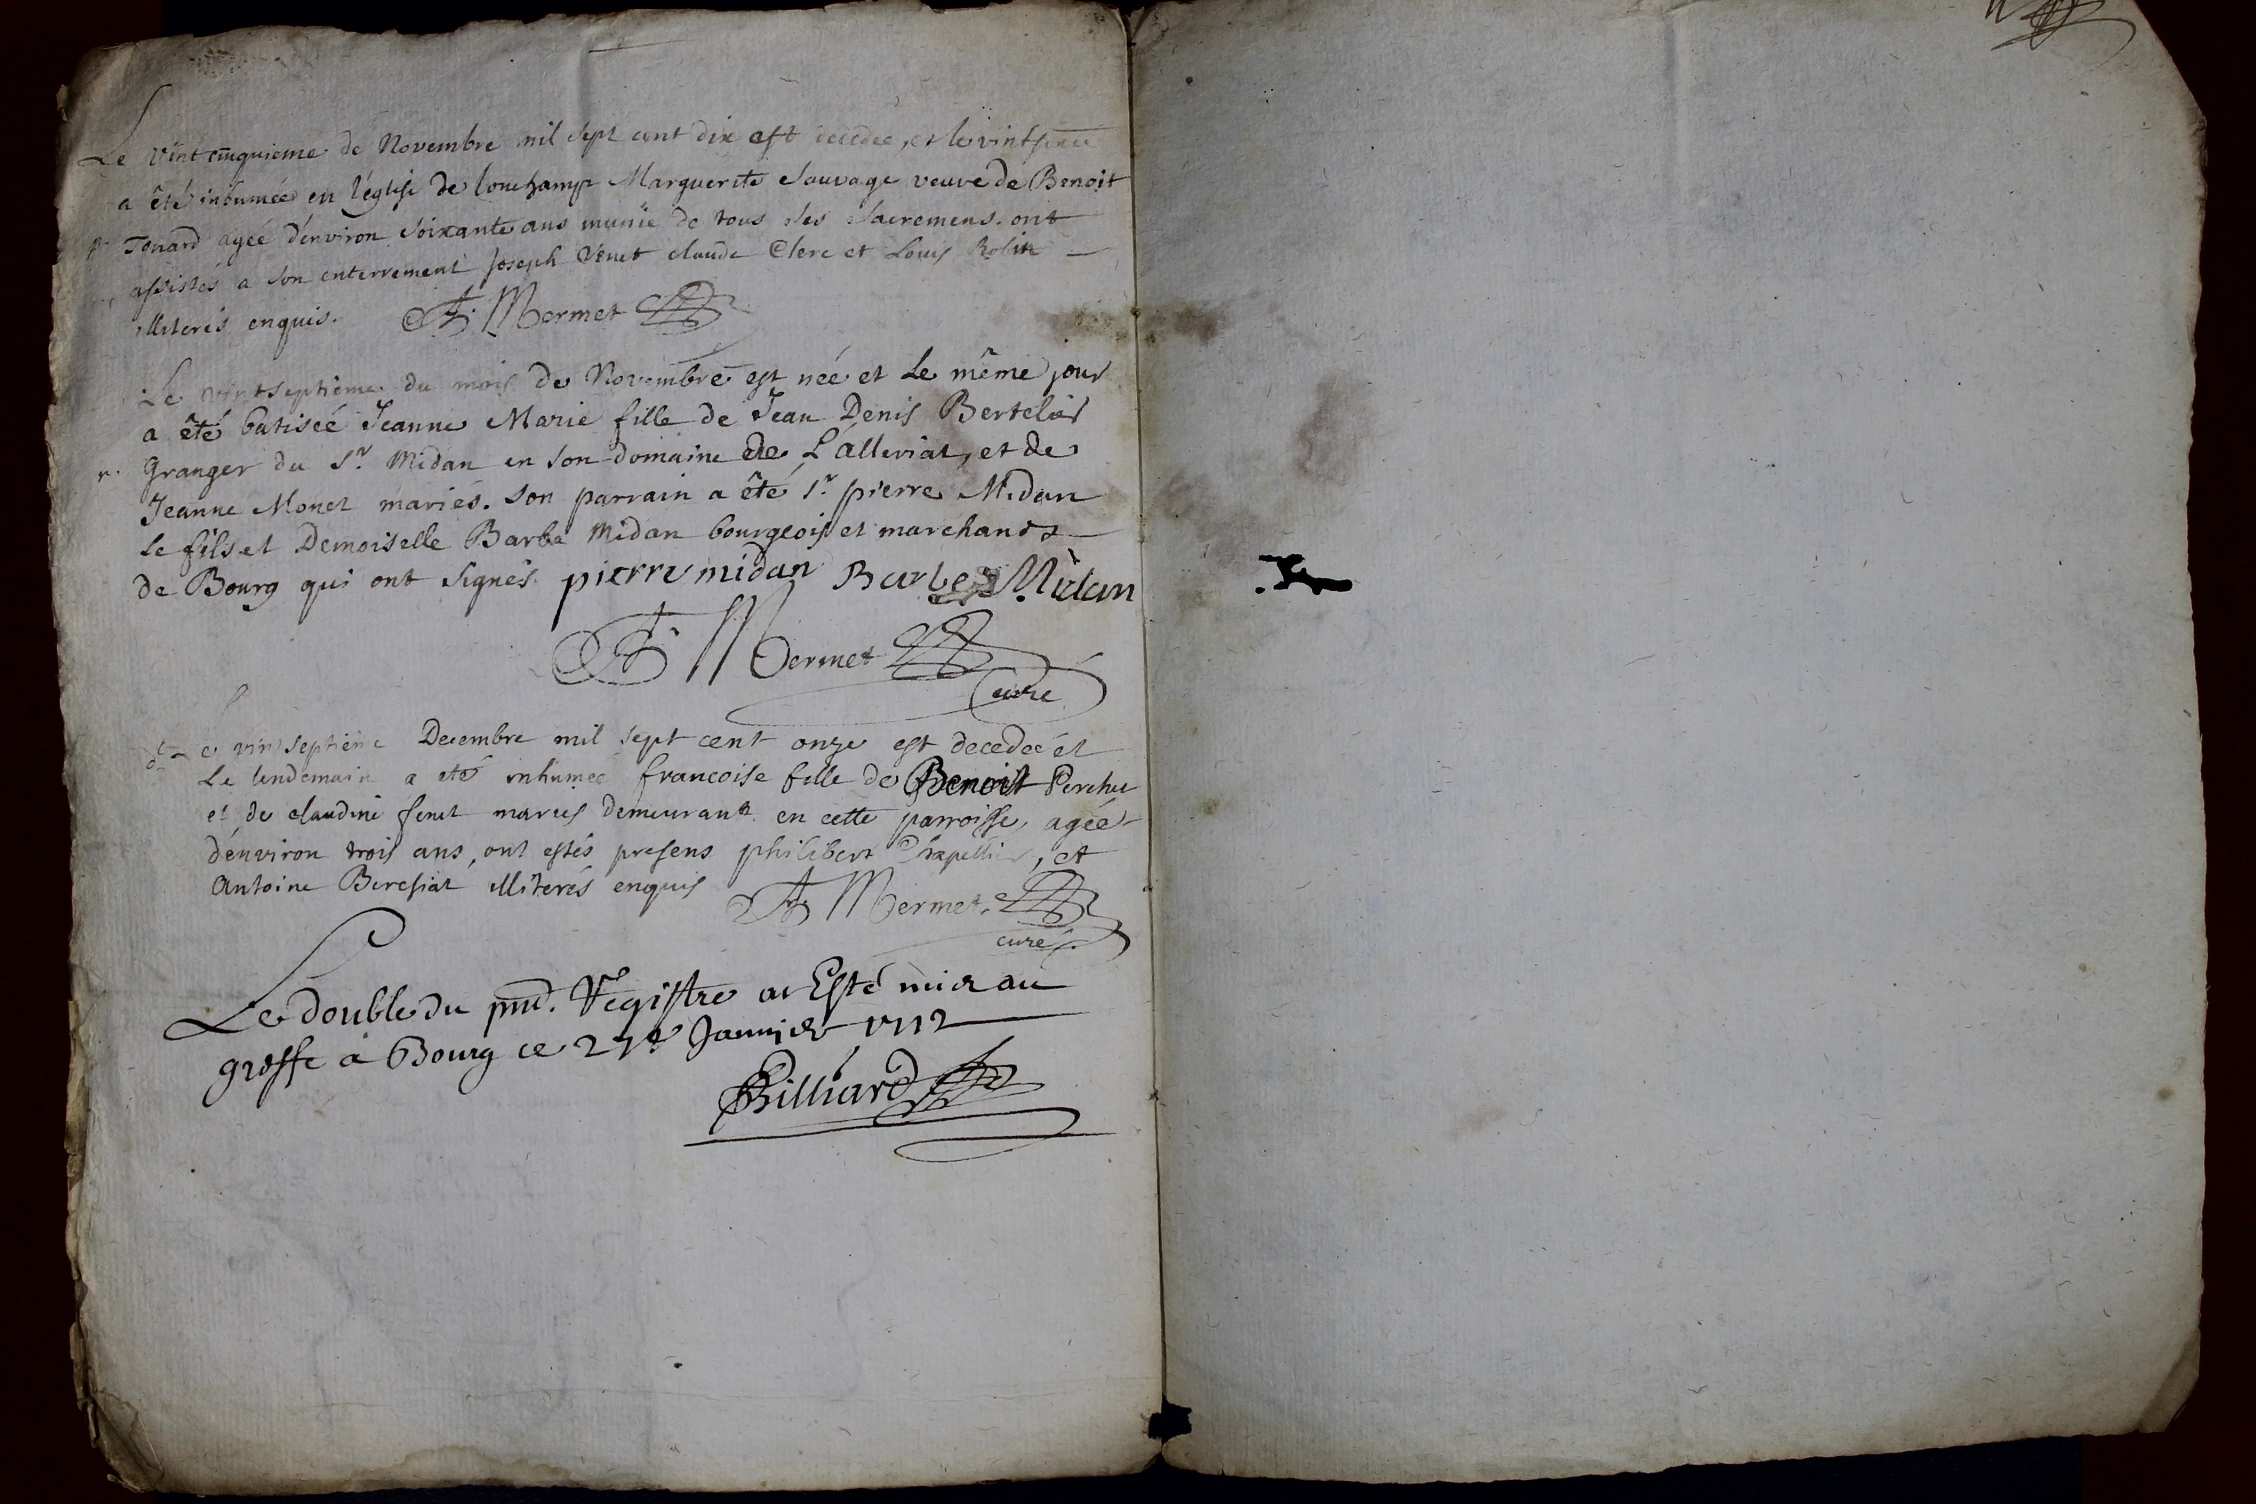 Le vint cinquieme de Novembre mil sept cent dix est decedée, et le vintsixie
a été inhumée en l'église de lonchamp Marguerite Sauvage veuve de Benoit
Tonard agée d'environ soixante ans munie de tous ses sacremens. ont
assistés a son enterrement Joseph Venet claude Clerc et Louis Rolin
illiterés enquis. Mermet
Le vintseptième du mois de Novembre est née et Le même jour
a été batisée Jeanne Marie fille de Jean Denis Bertelés
Granger du Sr. Midan en son domaine de L'alleriat, et de
Jeanne Monet mariés. son parrain a été Sr. pierre Midan
le fils et Demoiselle Barbe Midan bourgeois et marchands
de Bourg qui ont signés. pierre midan Barbe Midan
Mermet
curé
Le vintseptième Decembre mil sept cent onze est decedée et
Le lendemain a été inhumée francoise fille de Benoit Perchet
et de claudine fenet mariés demeurant en cette parroisse, agée
d'environ trois ans, ont estés presens philibert Chapellier, et
Antoine Beresiat illiterés enquis Mermet.
curé.
Le double du pnt. Registre a Esté mis au
greffe a Bourg ce 27e Janvier 1712
Billiard